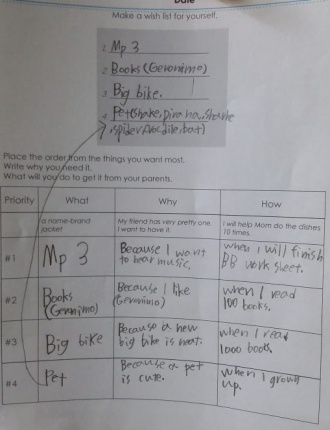 Date
Make a wish list for yourself.
1. Mp 3
2. Books (Geronimo)
3. Big bike.
4. Pet(snake,
,spider, bat)
Place the order from the things you want most.
Write why you need it.
What will you do to get it from your parents.
Priority What Why How
a name-brand jacket My friend has very pretty one. I want to have it. I will help Mom do the dishes 10 times.
#1 Mp 3 Because I want to hear music. when I will finish BB work sheet.
#2 Books (Geronimo) Because I like (Geronimo) when I read 100 books.
#3 Big bike Because a new big bike is neat. when I read 1000 books.
#4 Pet Because a pet is cute. when I grown up.